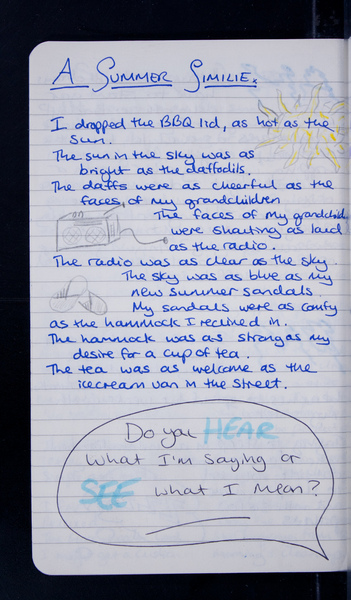 A SUMMER SIMILIE.
I dropped the BBQ lid, as hot as the
sun.
The sun in the sky was as
bright as the daffodils.
The daffs were as cheerful as the
faces of my grandchildren
The faces of my grandchildren
were shouting as loud
as the radio.
The radio was as clear as the sky.
The sky was as blue as my
new summer sandals
My sandals were as comfy
as the hammock I reclined in.
The hammock was as strong as my
desire for a cup of tea.
The tea was as welcome as the
icecream van in the street.
Do you HEAR
what I'm saying or
SEE what I mean?